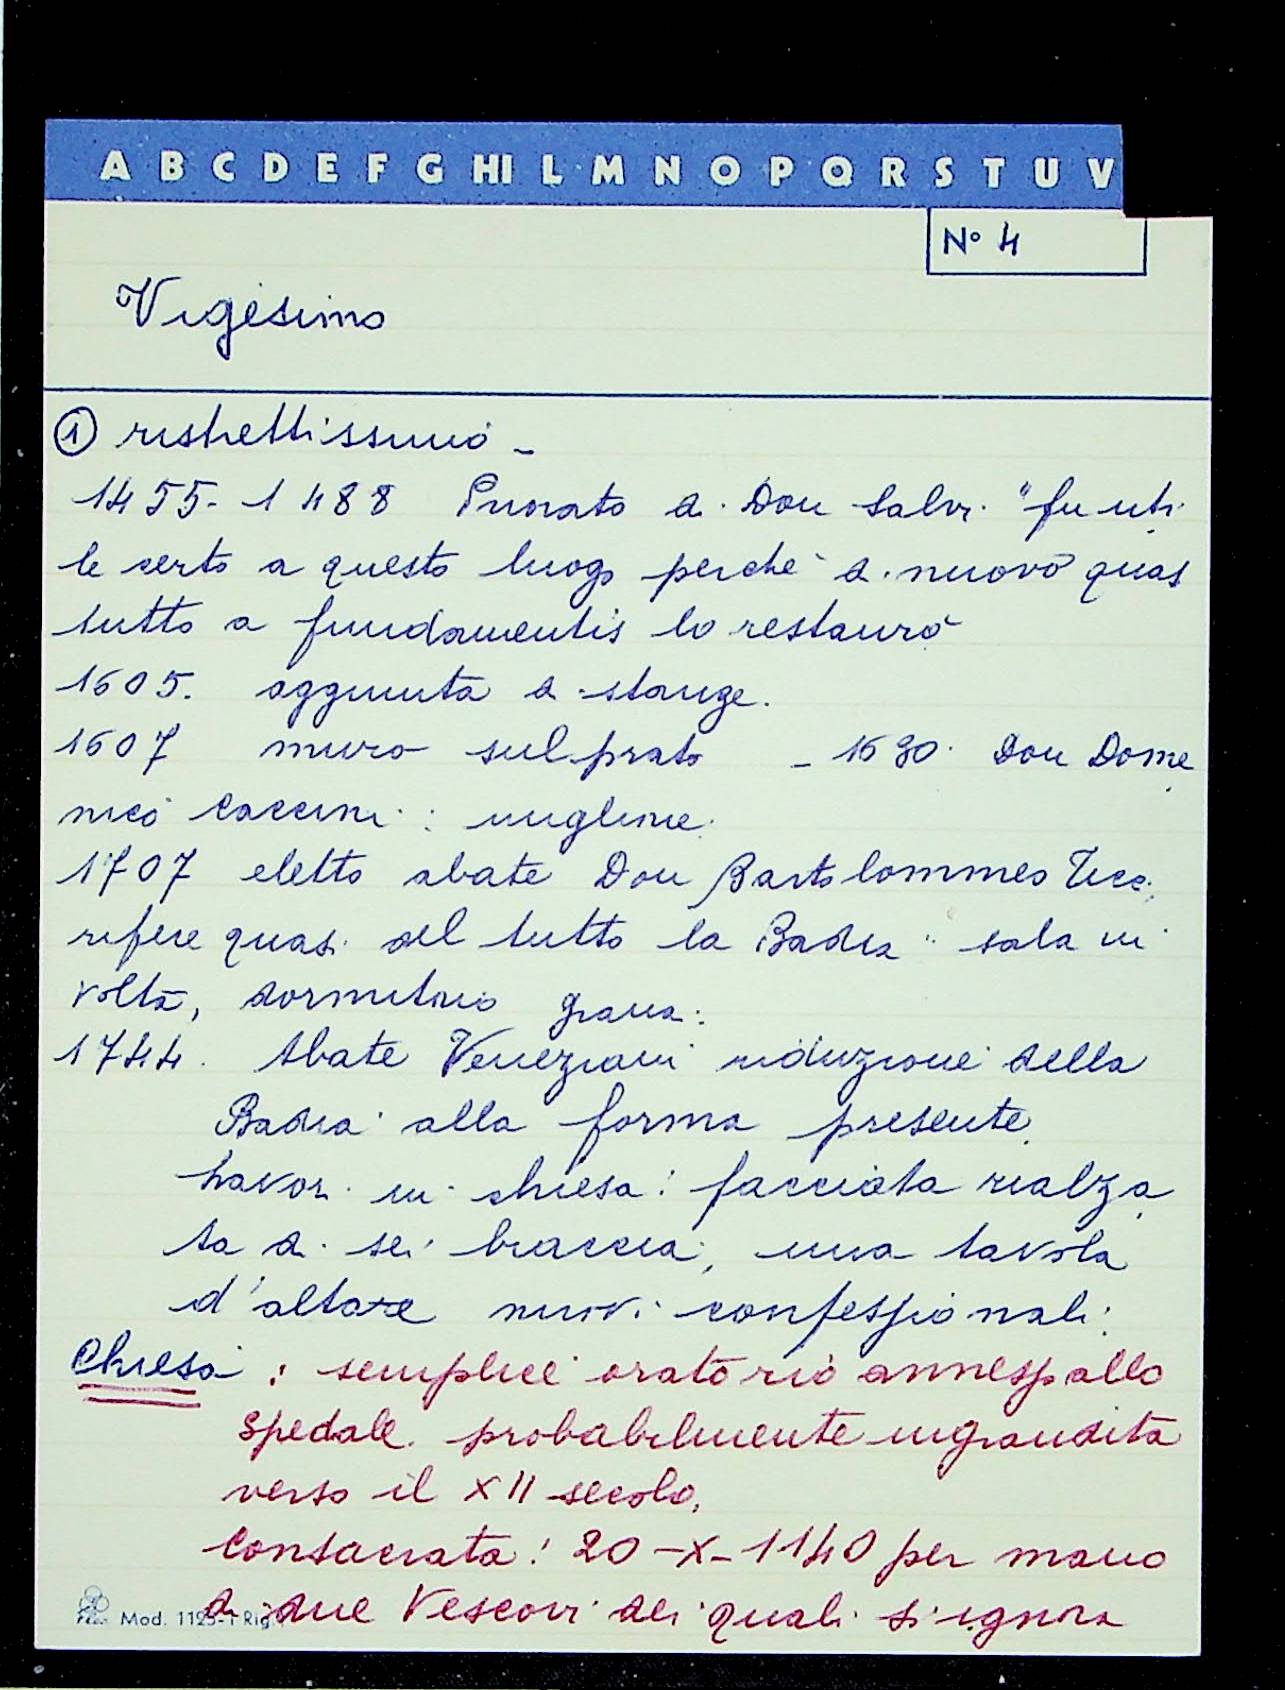 A B C D E F G HI L M N O P Q R S T U V
N° 4
Vigesimo
① ristrettissimo -
1455-1488 Priorato di Don Salvi. "fu uti
le certo a questo luogo perchè di nuovo quasi
tutto a fundamentis lo restaurò
1605. aggiunta di stanze.
1607 muro sul prato - 1630. Don Dome
nico Caccini: migliorie.
1707 eletto abate Don Bartolommeo
rifece quasi del tutto la Badia: sala in
volta, dormitorio
1744. Abate Veneziani riduzione della
Badia alla forma presente.
Lavori in chiesa: facciata rialza
ta di sei braccia, una tavola
d'altare nuovi confessionali.
Chiesa: semplice oratorio annesso allo
spedale. probabilmente ingrandita
verso il XII secolo.
Consacrata: 20-X-1140 per mano
di due Vescovi dei quali si ignora
Mod. 1125-1 Rig.